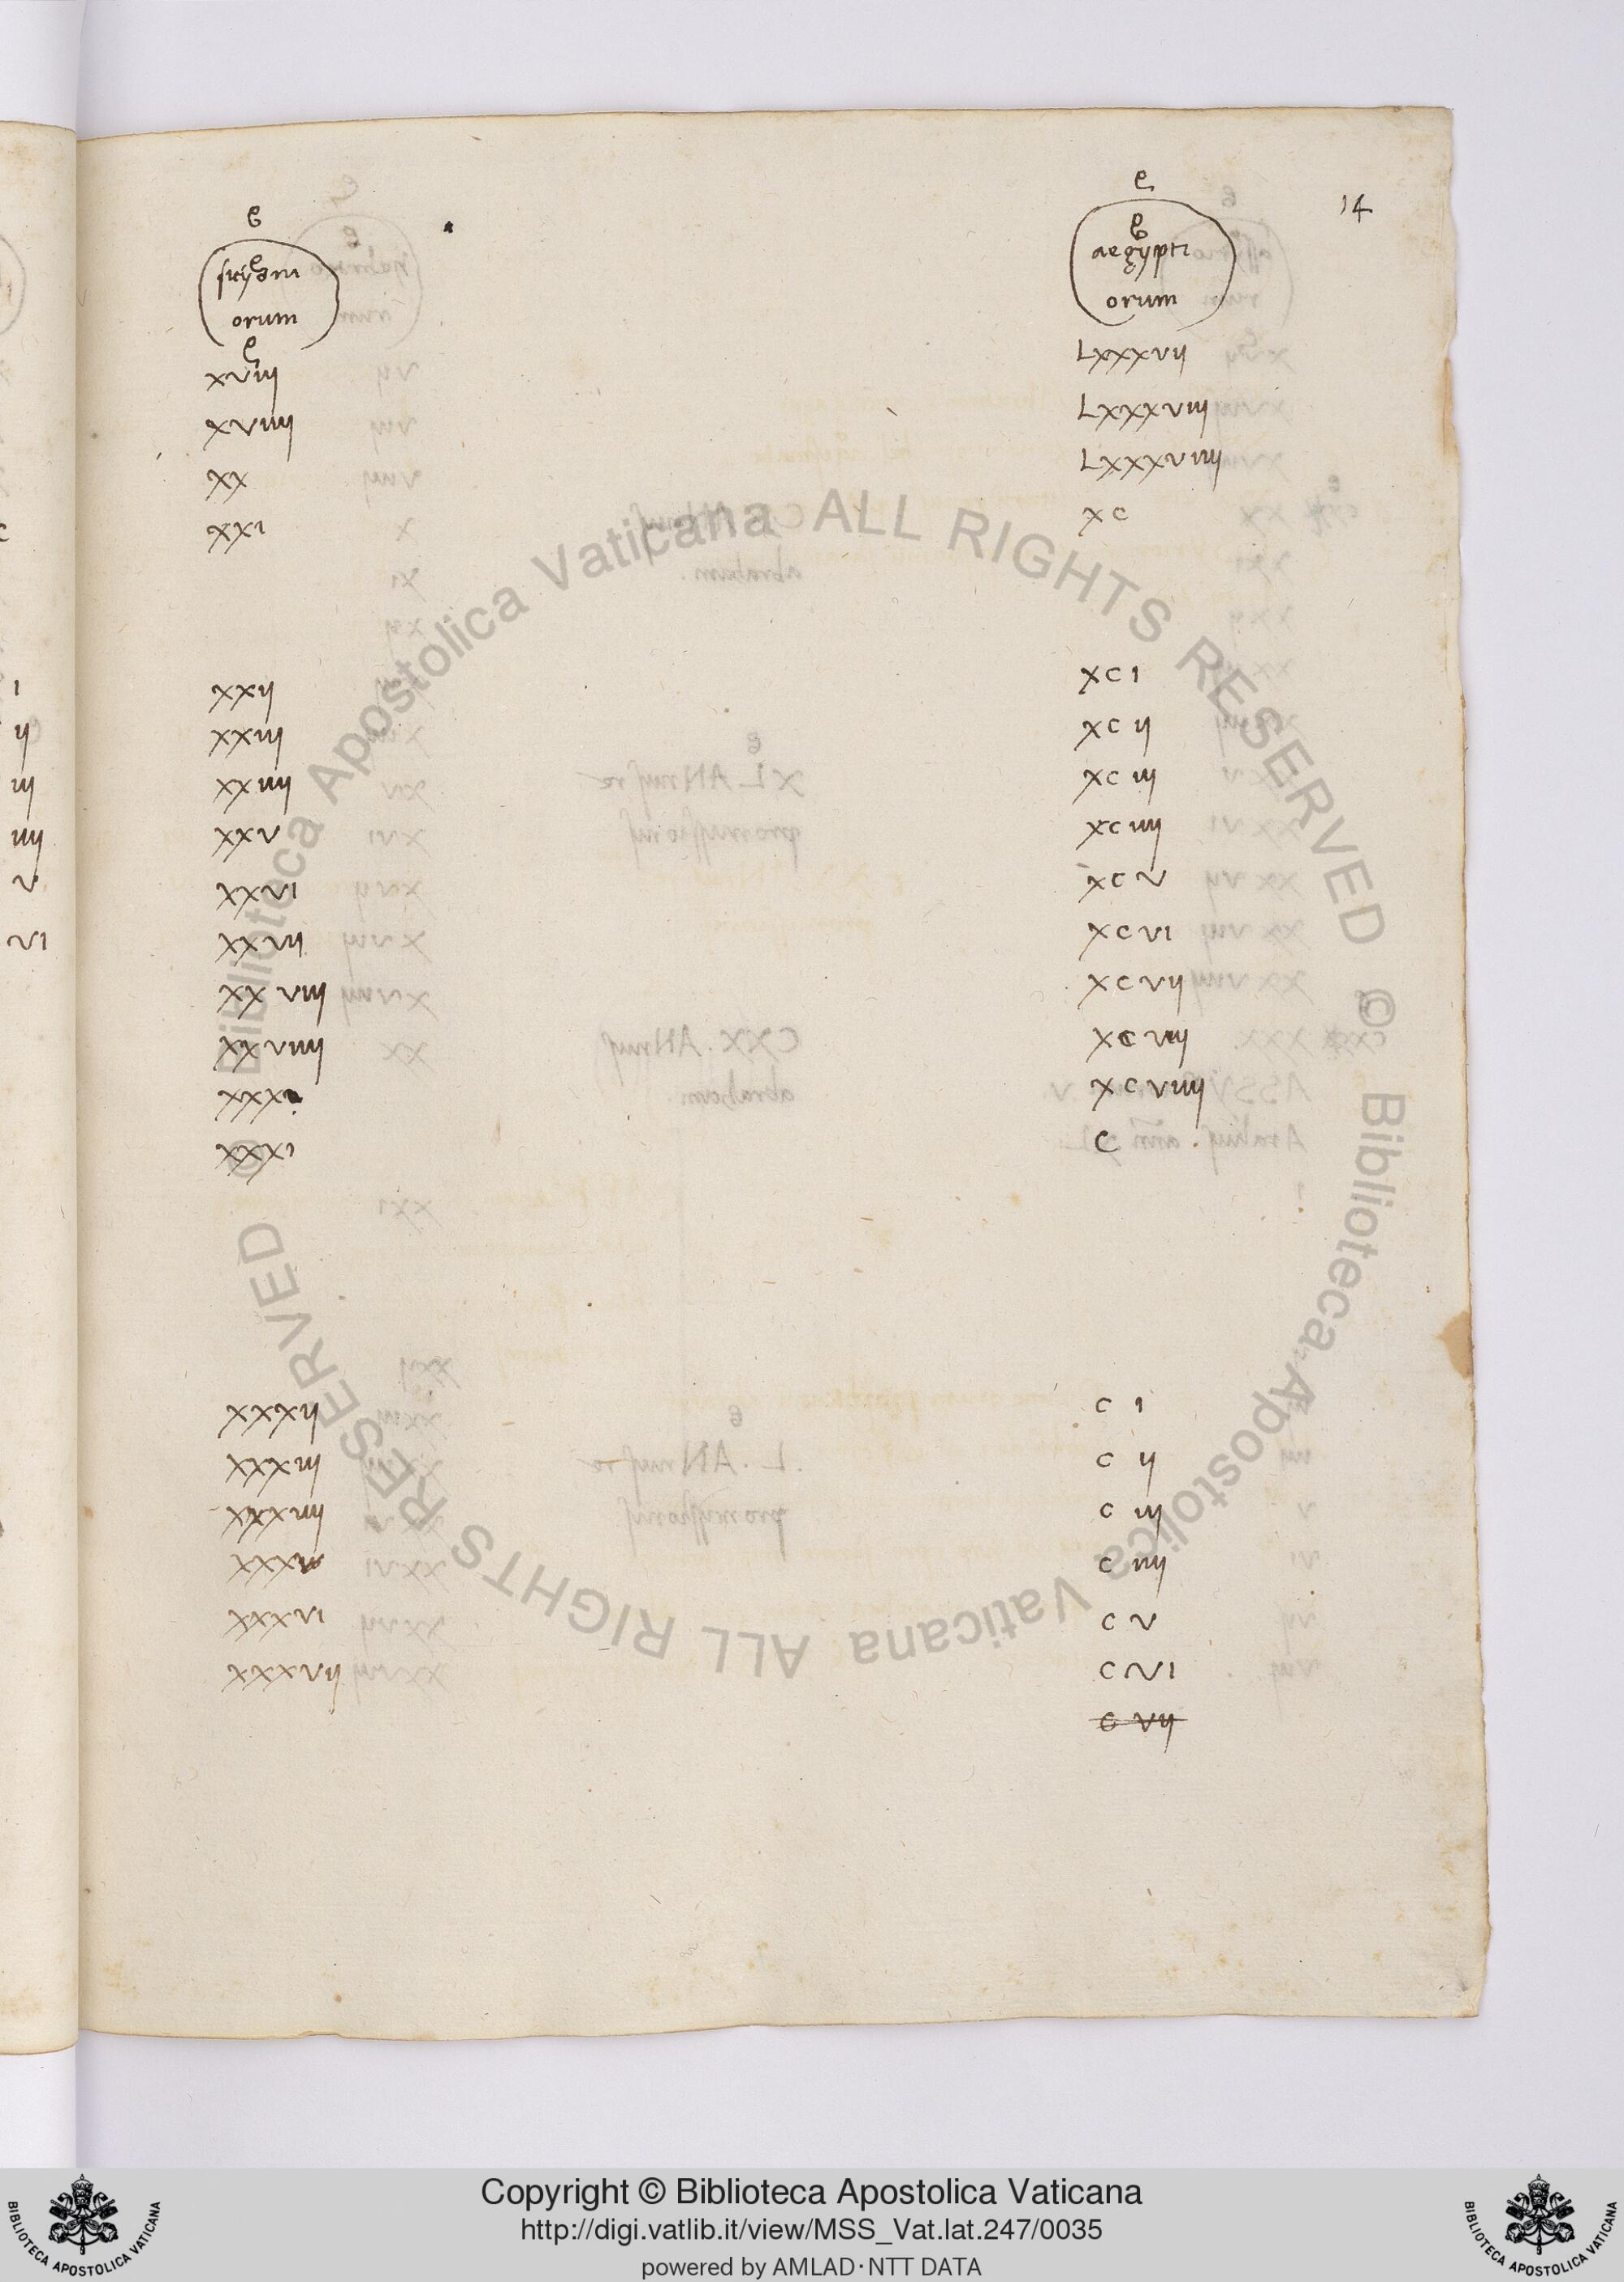 14
e
sicyoni
orum
xviij
xviiij
xx
xxi
xxij
xxiij
xxiiij
xxv
xxvi
xxvij
xxviij
xxviiij
xxx
xxxi
xxxij
xxxiij
xxxiiij
xxxv
xxxvi
xxxvij
e
aegypti
orum
Lxxxvij
Lxxxviij
Lxxxviiij
xc
xc i
xc ij
xc iij
xc iiij
xc v
xc vi
xc vij
xc viij
xc viiij
c
c i
c ij
c iij
c iiij
c v
c vi
c vij
i
ij
iij
iiij
v
vi
© Biblioteca Apostolica Vaticana ALL RIGHTS RESERVED
© Biblioteca Apostolica Vaticana ALL RIGHTS RESERVED
BIBLIOTECA APOSTOLICA VATICANA
Copyright © Biblioteca Apostolica Vaticana
http://digi.vatlib.it/view/MSS_Vat.lat.247/0035
powered by AMLAD·NTT DATA
BIBLIOTECA APOSTOLICA VATICANA